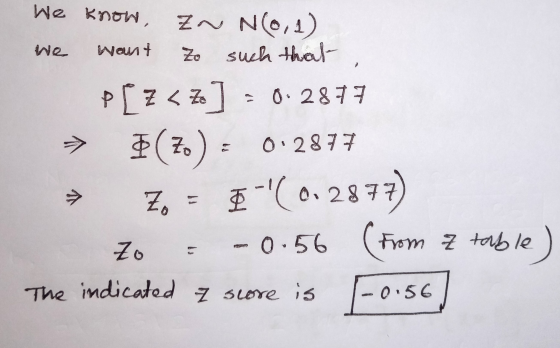 We know, Z ~ N(0,1)
We want Z₀ such that,
P[Z < Z₀] = 0.2877
⇒ Φ(Z₀) = 0.2877
⇒ Z₀ = Φ⁻¹(0.2877)
Z₀ = -0.56 (From Z table)
The indicated Z score is -0.56